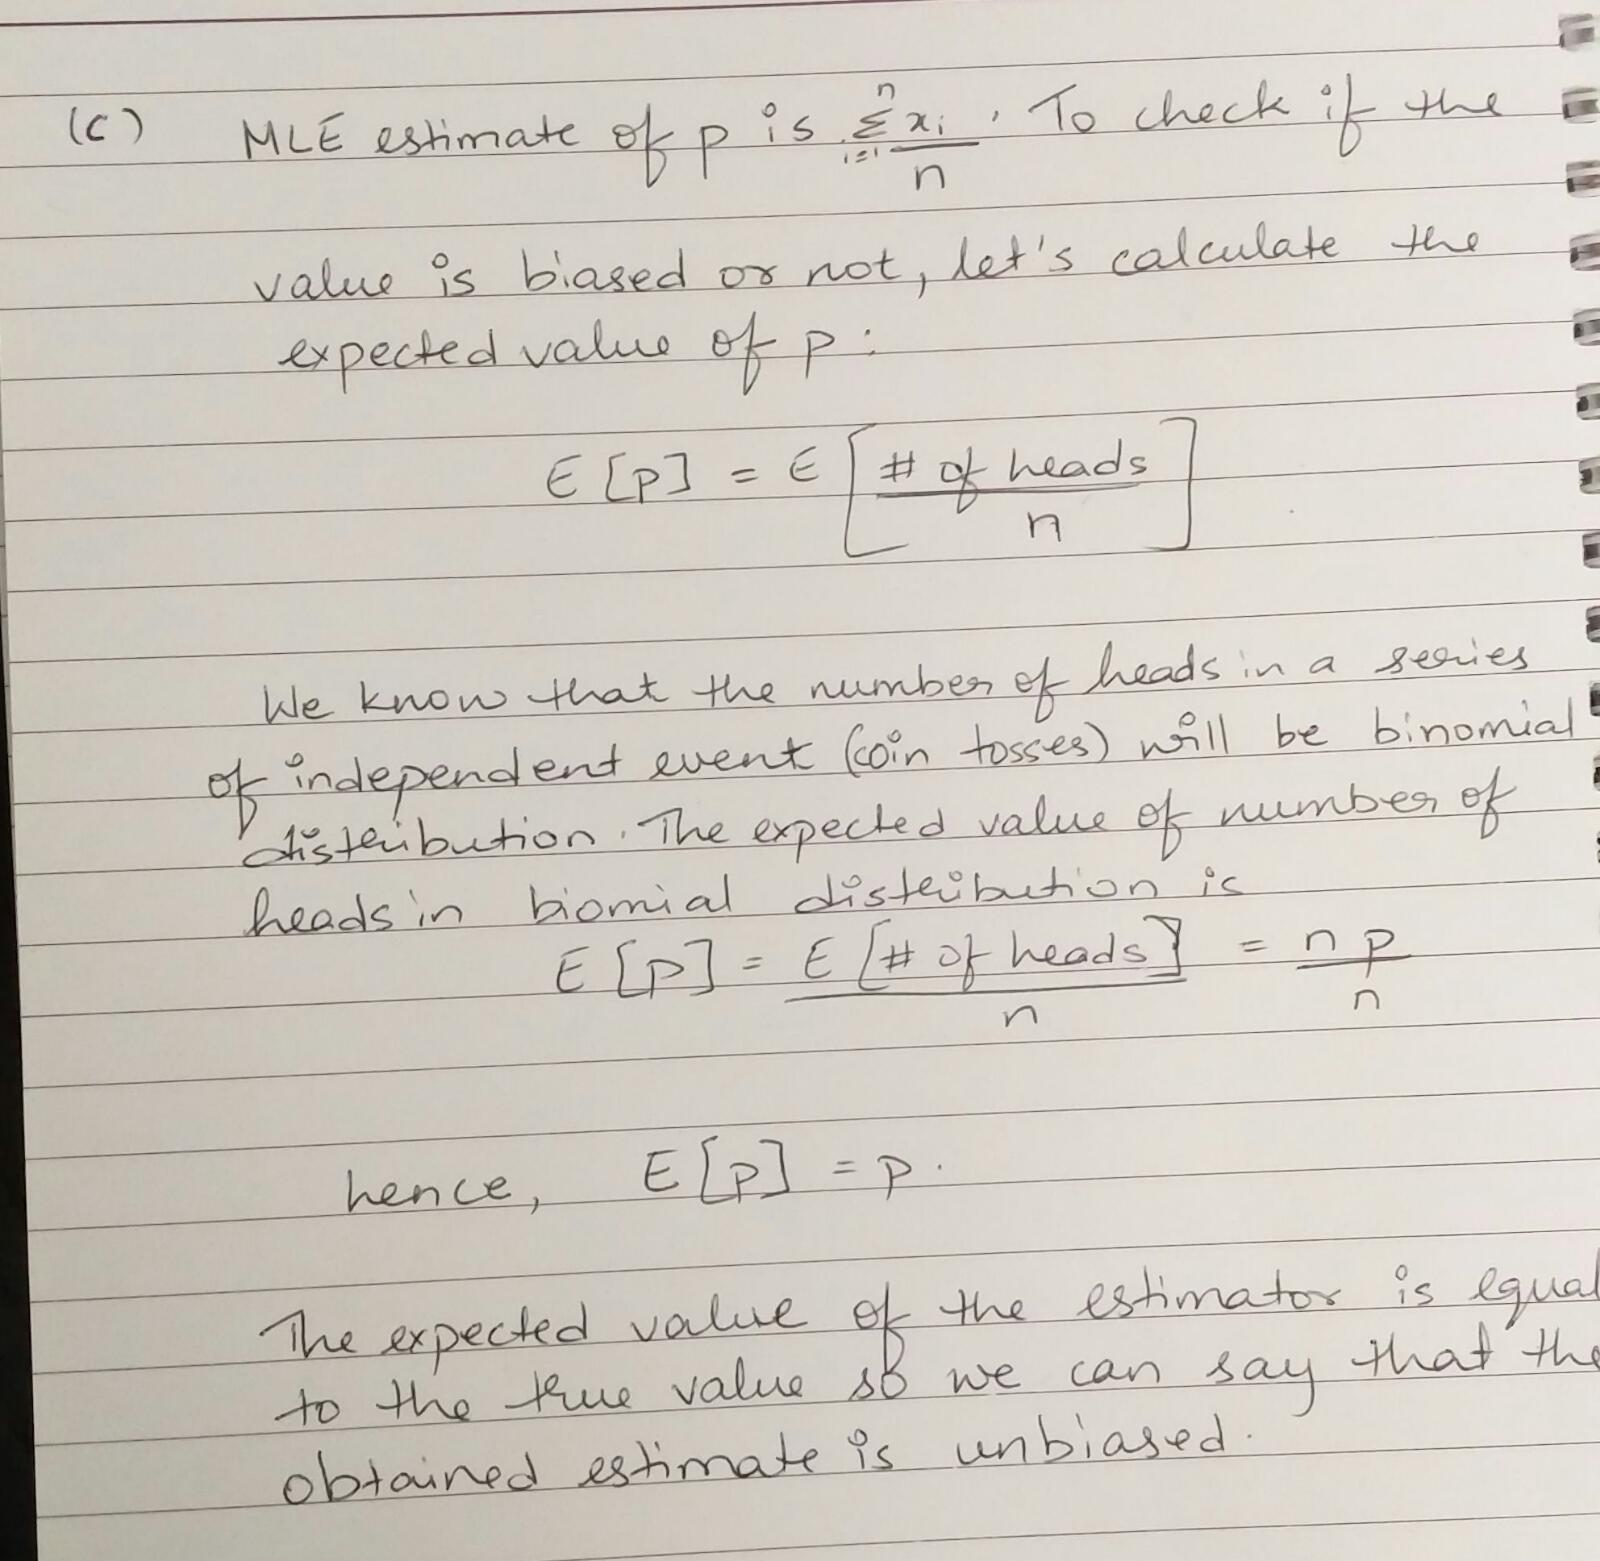 (c) MLE estimate of p is \frac{\sum_{i=1}^{n} x_i}{n}. To check if the
value is biased or not, let's calculate the
expected value of p:
E[p] = E[\frac{# of heads}{n}]
We know that the number of heads in a series
of independent event (coin tosses) will be binomial
distribution. The expected value of number of
heads in biomial distribution is
E[p] = \frac{E[# of heads]}{n} = \frac{np}{n}
hence, E[p] = p.
The expected value of the estimator is equal
to the true value so we can say that the
obtained estimate is unbiased.